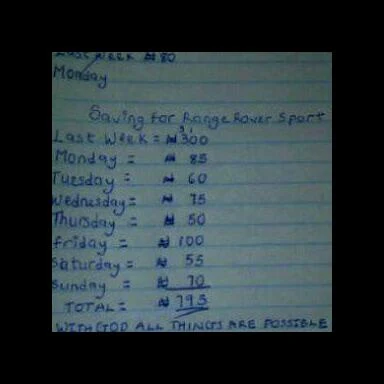 Last Week ₦80
Monday
Saving for Range Rover Sport
Last Week = ₦300
Monday = ₦ 85
Tuesday = ₦ 60
Wednesday = ₦ 75
Thursday = ₦ 50
Friday = ₦ 100
Saturday = ₦ 55
Sunday = ₦ 70
TOTAL = ₦ 795
WITH GOD ALL THINGS ARE POSSIBLE